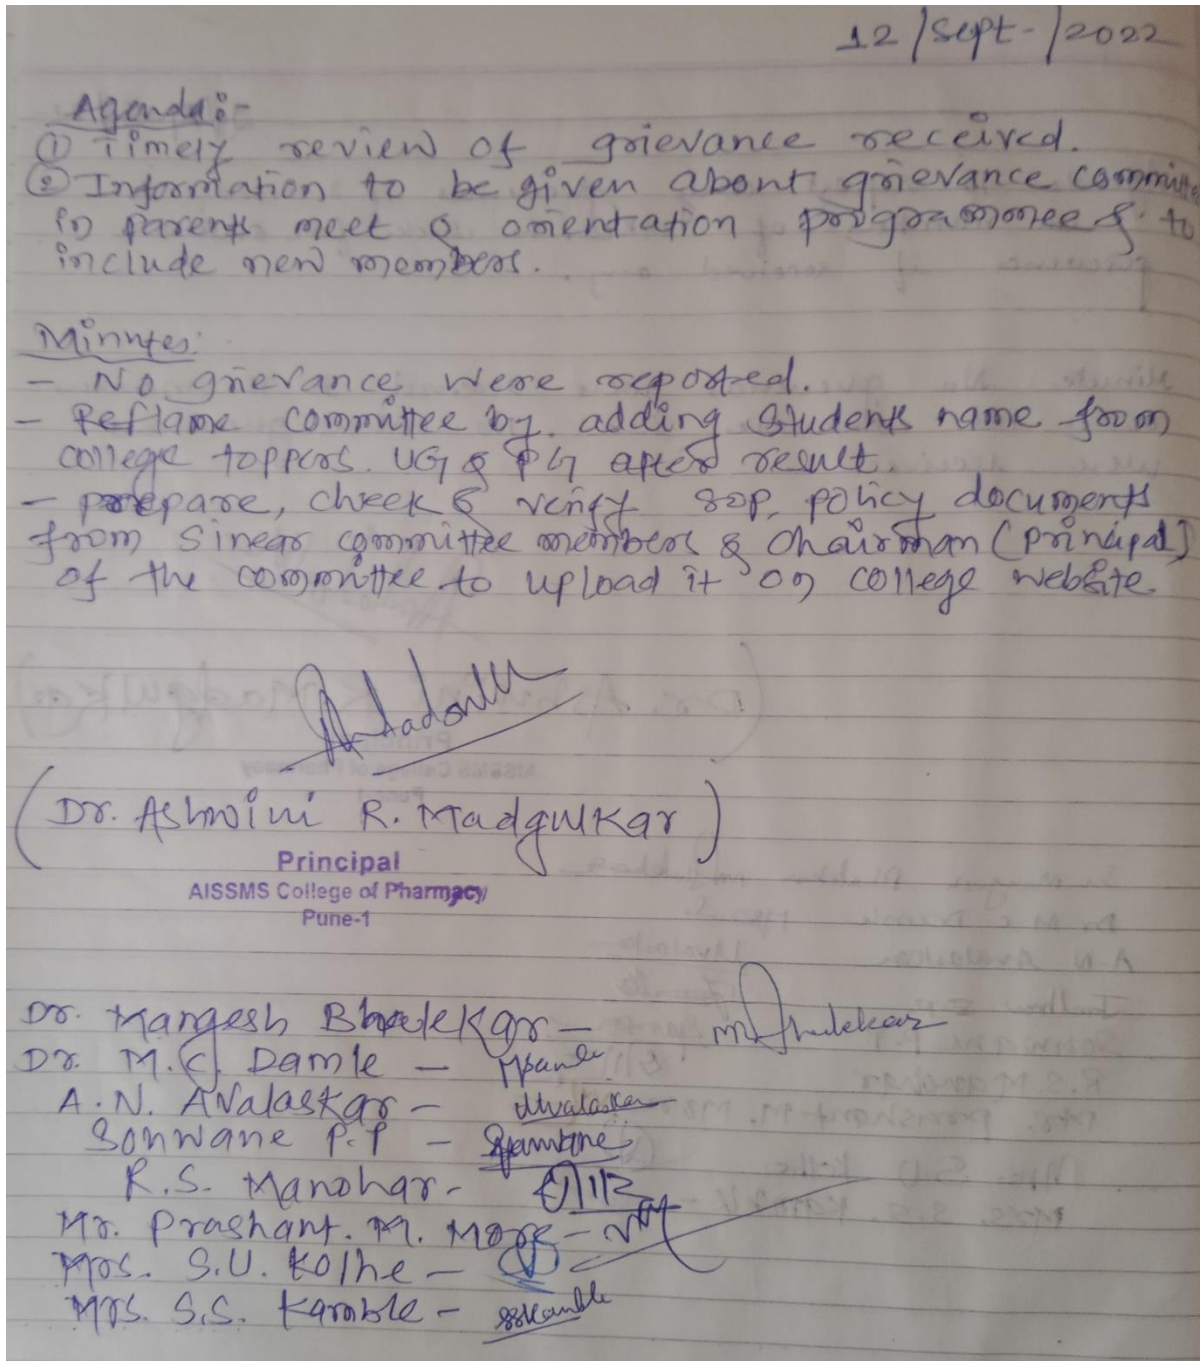 12/Sept-/2022
Agenda:-
① Timely review of grievance received.
② Information to be given about grievance committee
in parents meet & orientation programmee & to
include new members.
Minutes:
- No grievance were reported.
- Reflame committee by adding students name from
college toppers. UG & PG after result.
- prepare, check & verify sop, policy documents
from Sinear committee members & Chairman (principal)
of the committee to upload it on college website.
(Dr. Ashwini R. Madgulkar)
Principal
AISSMS College of Pharmacy
Pune-1
Dr. Mangesh Bhalekar - MBhalekar
Dr. M.C. Damle -
A.N. Avalaskar - Avalaskar
Sonwane P.P -
R.S. Manohar -
Mr. Prashant. M. More -
Mrs. S.U. Kolhe -
Mrs. S.S. Kamble - SSKamble